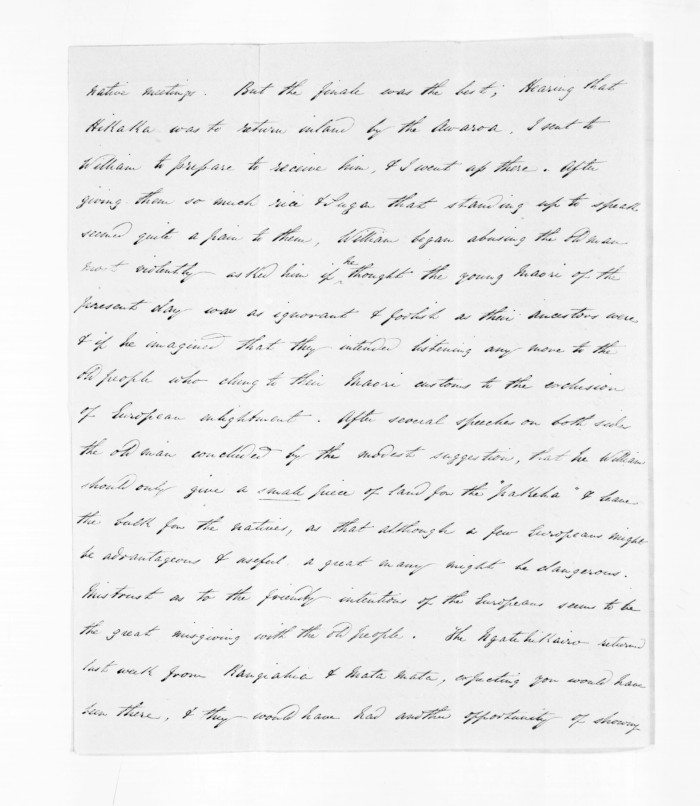 native meetings. But the finale was the best; Hearing that
Hikaka was to return inland by the Awaroa, I sent to
William to prepare to receive him, & I went up there. After
giving them so much rice & Sugar that standing up to speak
seemed quite a pain to them, William began abusing the old man
most violently asked him if he thought the young Maori of the
present day was as ignorant & foolish as their ancestors were
& if he imagined that they intended listening any more to the
old people who clung to their Maori customs to the exclusion
of European enlightment. After several speeches on both sides
the old man concluded by the modest suggestion, that he William
should only give a small piece of land for the "pakeha" & leave
the bulk for the natives, as that although a few Europeans might
be advantageous & useful a great many might be dangerous.
Mistrust as to the friendly intentions of the Europeans seems to be
the great misgiving with the old people. The Ngatihikairo returned
last week from Rangiahia & Mata mata, expecting you would have
been there, & they would have had another opportunity of showing